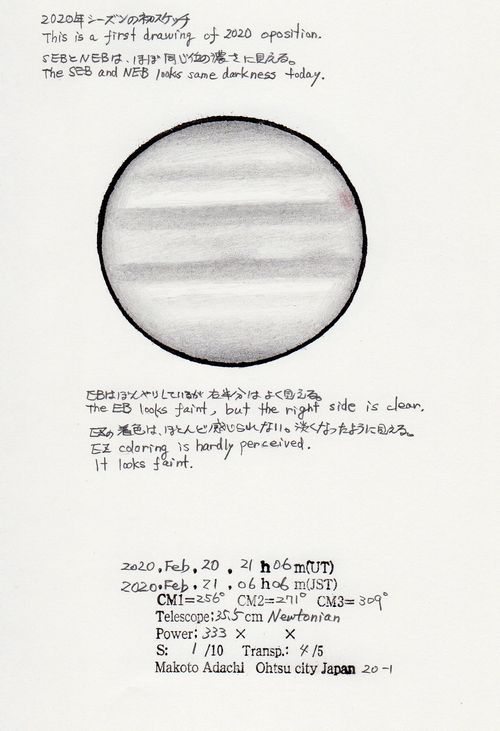 2020年シーズンの初スケッチ
This is a first drawing of 2020 oposition.
SEBとNEBは、ほぼ同じ位の濃さに見える。
The SEB and NEB looks same darkness today.
EBはぼんやりしているが右半分はよく見える。
The EB looks faint, but the right side is clear.
EZの着色は、ほとんど感じられない。淡くなったように見える。
EZ coloring is hardly perceived.
It looks faint.
2020.Feb.20.21h06m(UT)
2020.Feb.21.06h06m(JST)
CM1=256° CM2=271° CM3=309°
Telescope:35.5cm Newtonian
Power:333× ×
S: 1/10 Transp.:4/5
Makoto Adachi Ohtsu city Japan 20-1